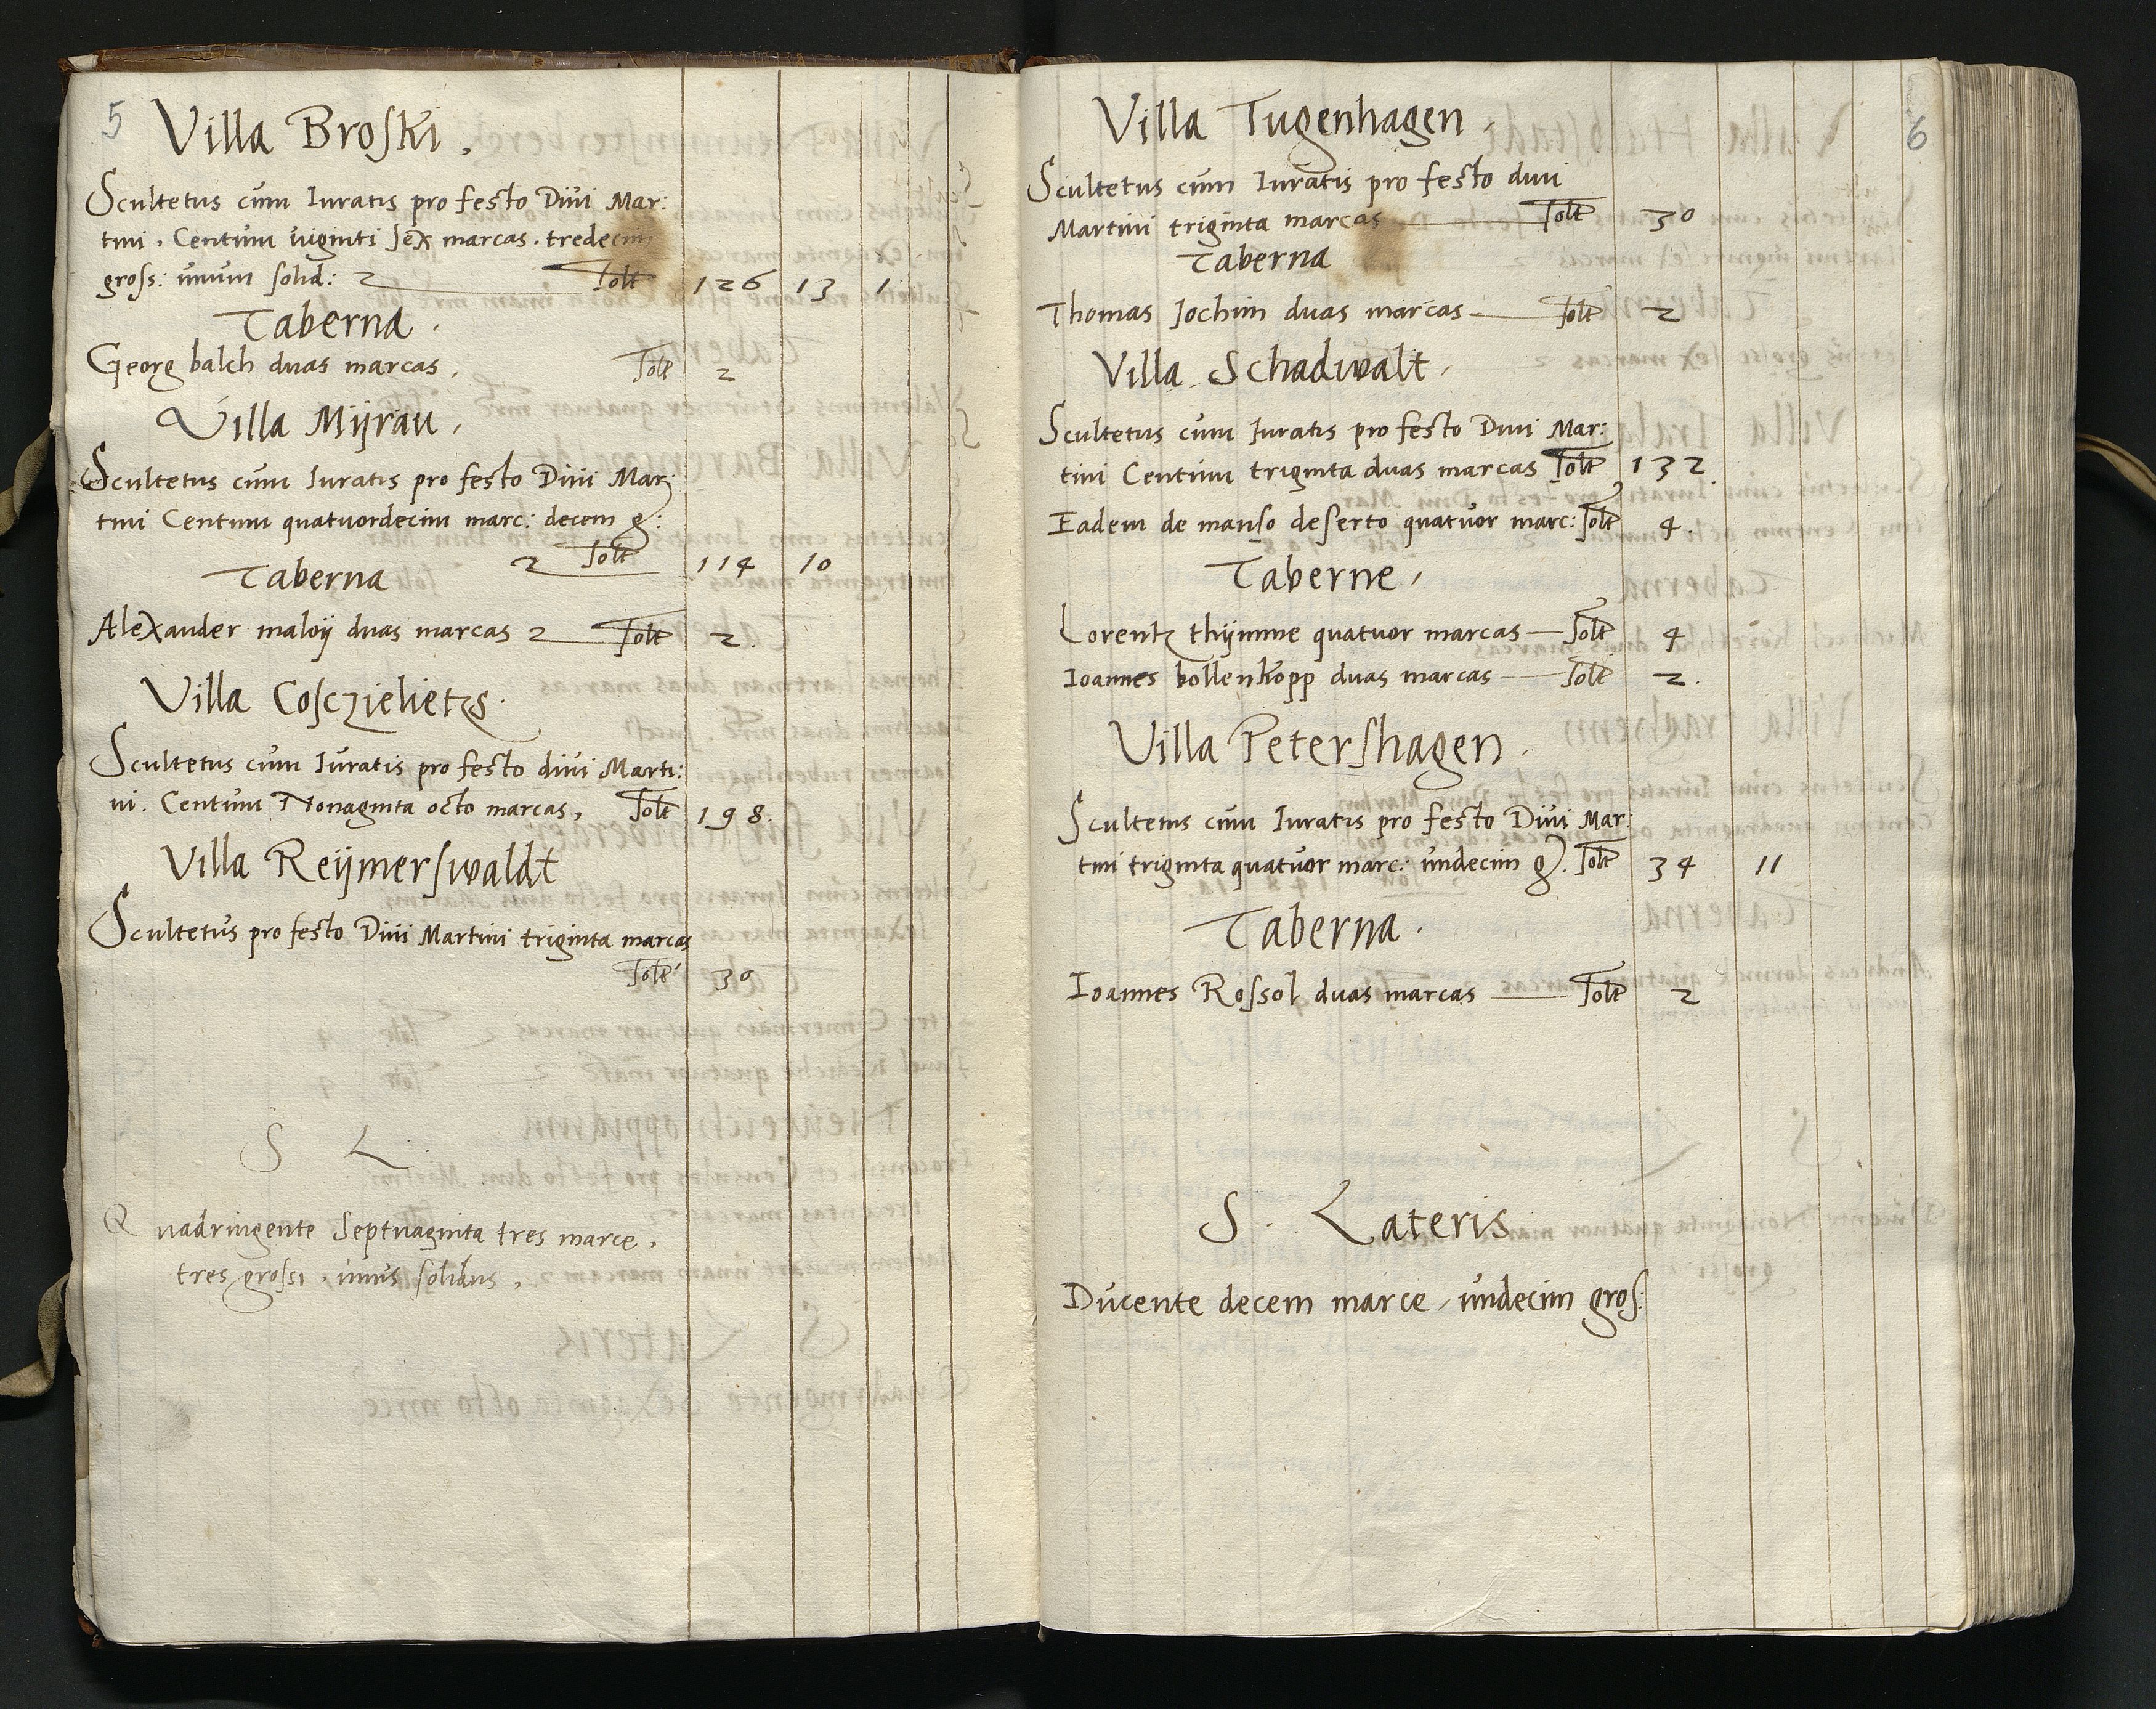 5
Villa Broski.
Scultetus cum Iuratis pro festo Diui Mar:
tini. Centum viginti sex marcas. tredecim
gross: unum solid: Solt 126 13 1
Taberna.
Georg balch duas marcas. Solt 2
Villa Mijrau.
Scultetus cum Iuratis pro festo Diui Mar:
tini Centum quatuordecim marc: decem g:
Solt 114 10
Taberna
Alexander maloij duas marcas Solt 2.
Villa Cosczielietzs.
Scultetus cum Iuratis pro festo diui Marti:
ni. Centum Nonaginta octo marcas. Solt 198.
Villa Reijmerswaldt
Scultetus pro festo Diui Martini triginta marcas
Solt 30
S L.
Quadringente Septuaginta tres marce.
tres grossi. unus solidus.
6
Villa Tugenhagen.
Scultetus cum Iuratis pro festo diui
Martini triginta marcas Solt 30
Taberna
Thomas Jochim duas marcas Solt 2
Villa Schadwalt.
Scultetus cum Iuratis pro festo Diui Mar:
tini Centum triginta duas marcas Solt 132.
Eadem de manso deserto quatuor marc: Solt 4.
Taberne.
Lorentz thijmme quatuor marcas Solt 4
Ioannes bollenkopp duas marcas Solt 2.
Villa Petershagen.
Scultetus cum Iuratis pro festo Diui Mar:
tini triginta quatuor marc: undecim g. Solt 34 11
Taberna.
Ioannes Rossol duas marcas Solt 2
S. Lateris
Ducente decem marce, undecim gros: